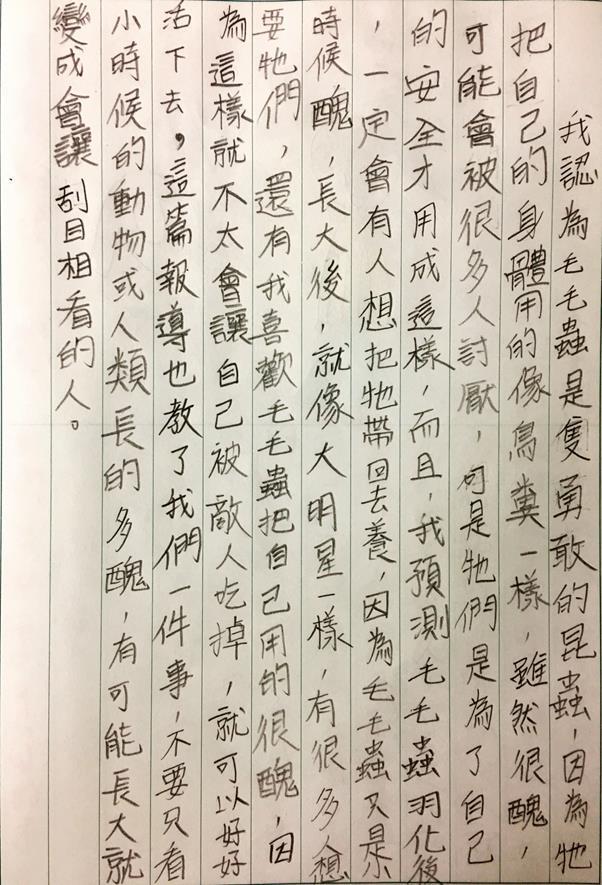 我認為毛毛蟲是隻勇敢的昆蟲，因為牠
把自己的身體用的像鳥糞一樣，雖然很醜，
可能會被很多人討厭，可是牠們是為了自己
的安全才用成這樣，而且，我預測毛毛蟲羽化後
，一定會有人想把牠帶回去養，因為毛毛蟲只是小
時候醜，長大後，就像大明星一樣，有很多人想
要牠們，還有我喜歡毛毛蟲把自己用的很醜，因
為這樣就不太會讓自己被敵人吃掉，就可以好好
活下去，這篇報導也教了我們一件事，不要只看
小時候的動物或人類長的多醜，有可能長大就
變成會讓刮目相看的人。